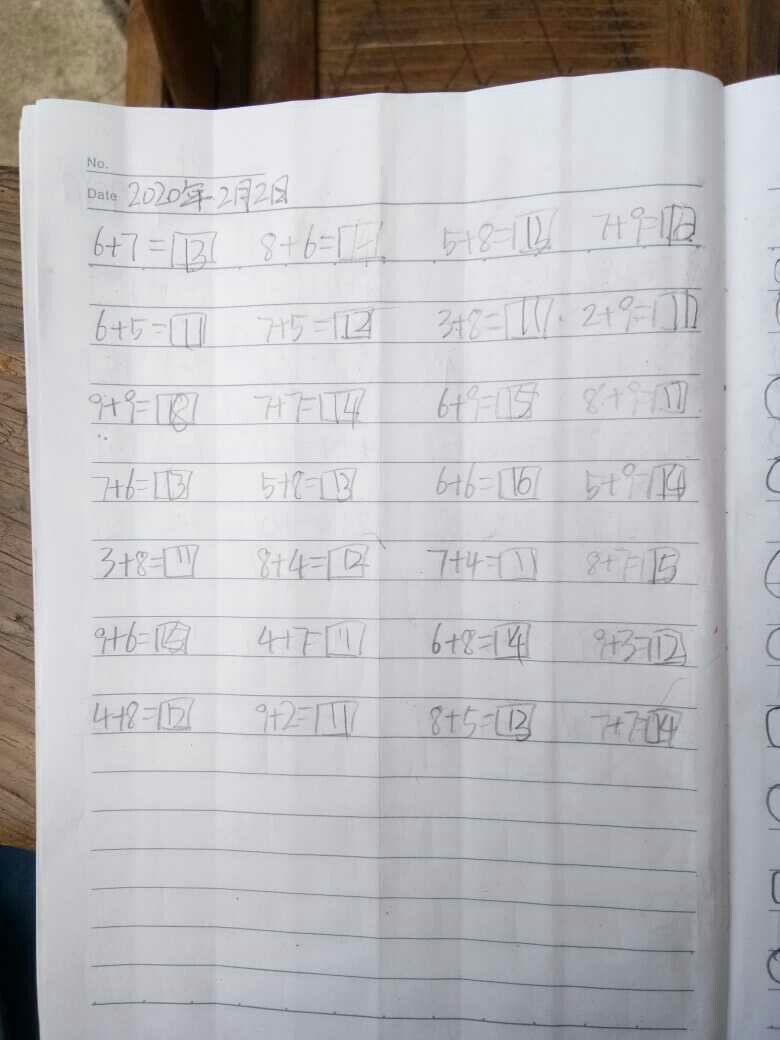 No.
Date 2020年2月2日
6+7=13 8+6=14 5+8=13 7+9=16
6+5=11 7+5=12 3+8=11 2+9=11
9+9=18 7+7=14 6+9=15 8+9=17
7+6=13 5+8=13 6+6=16 5+9=14
3+8=11 8+4=12 7+4=11 8+7=15
9+6=15 4+7=11 6+8=14 9+3=12
4+8=12 9+2=11 8+5=13 7+7=14